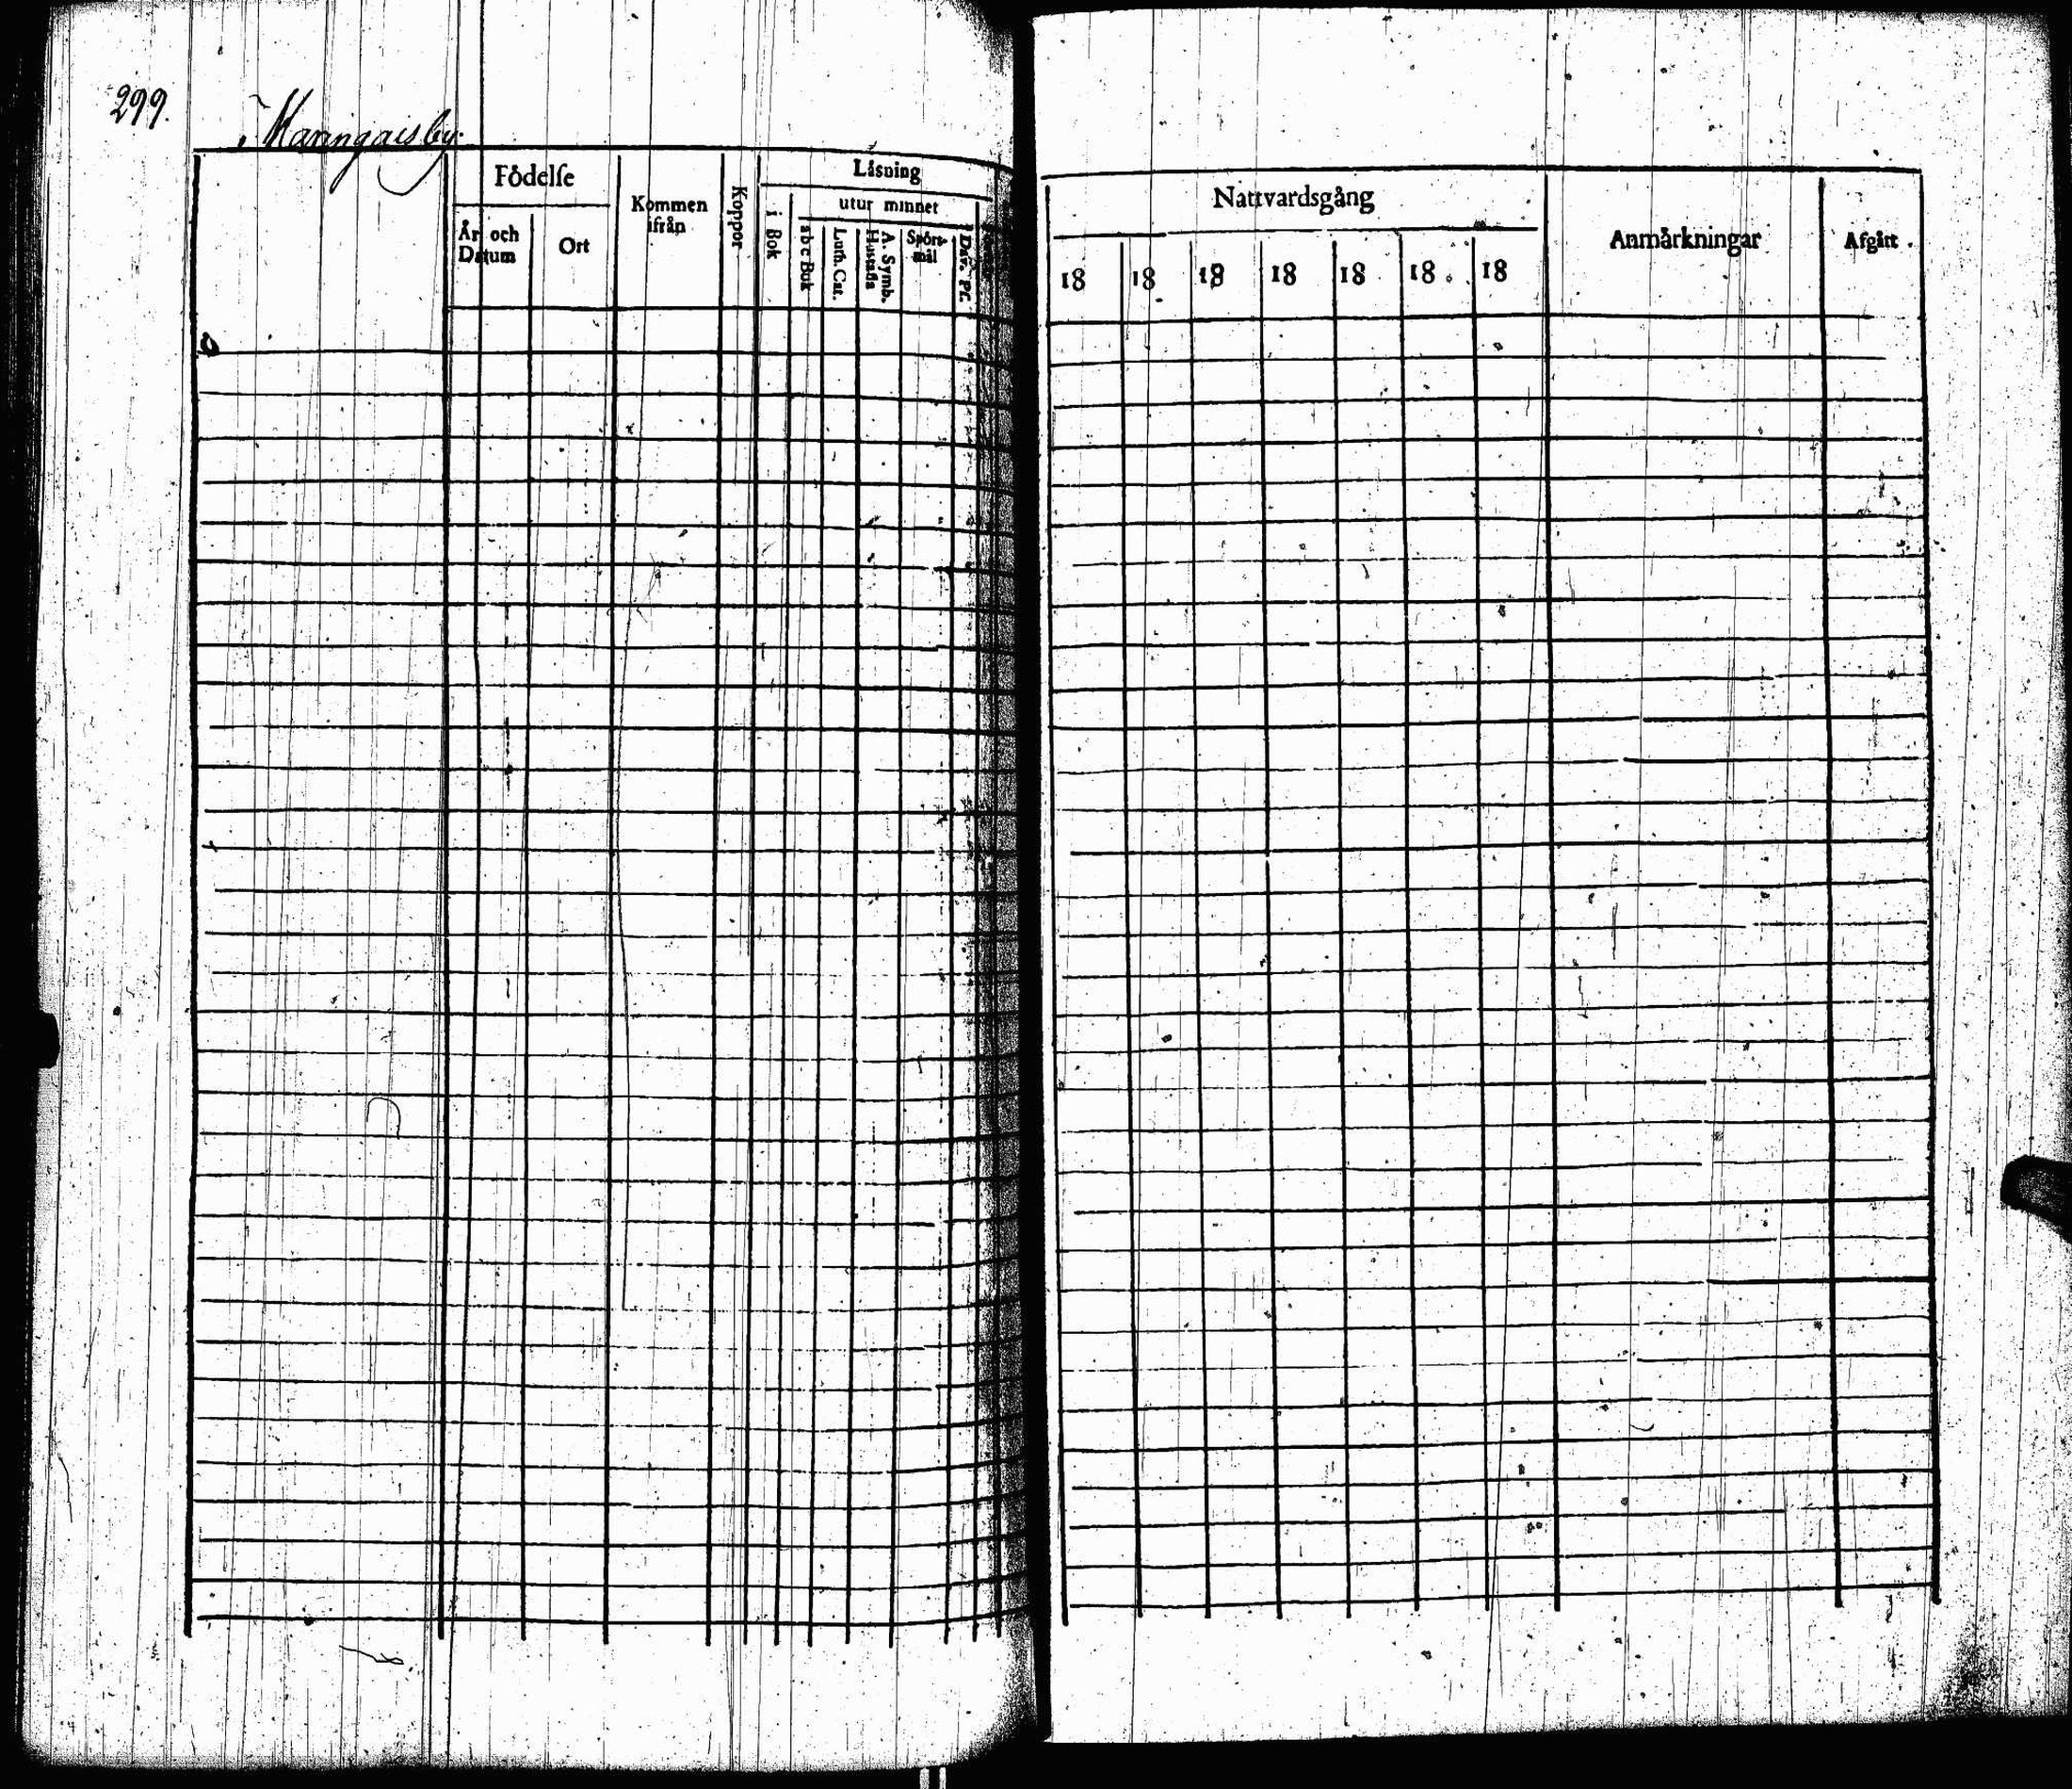 299.
Maringaisby.
Födelse
År och Datum
Ort
Kommen ifrån
Koppor
Läsning
i Bok
utur minnet
a b c Bok
Luth. Cat.
A. Symb.
Hustafla
Spörs-
mål
Dav. Ps.
Nattvardsgång
18 18 18 18 18 18 18
Anmärkningar
Afgått.